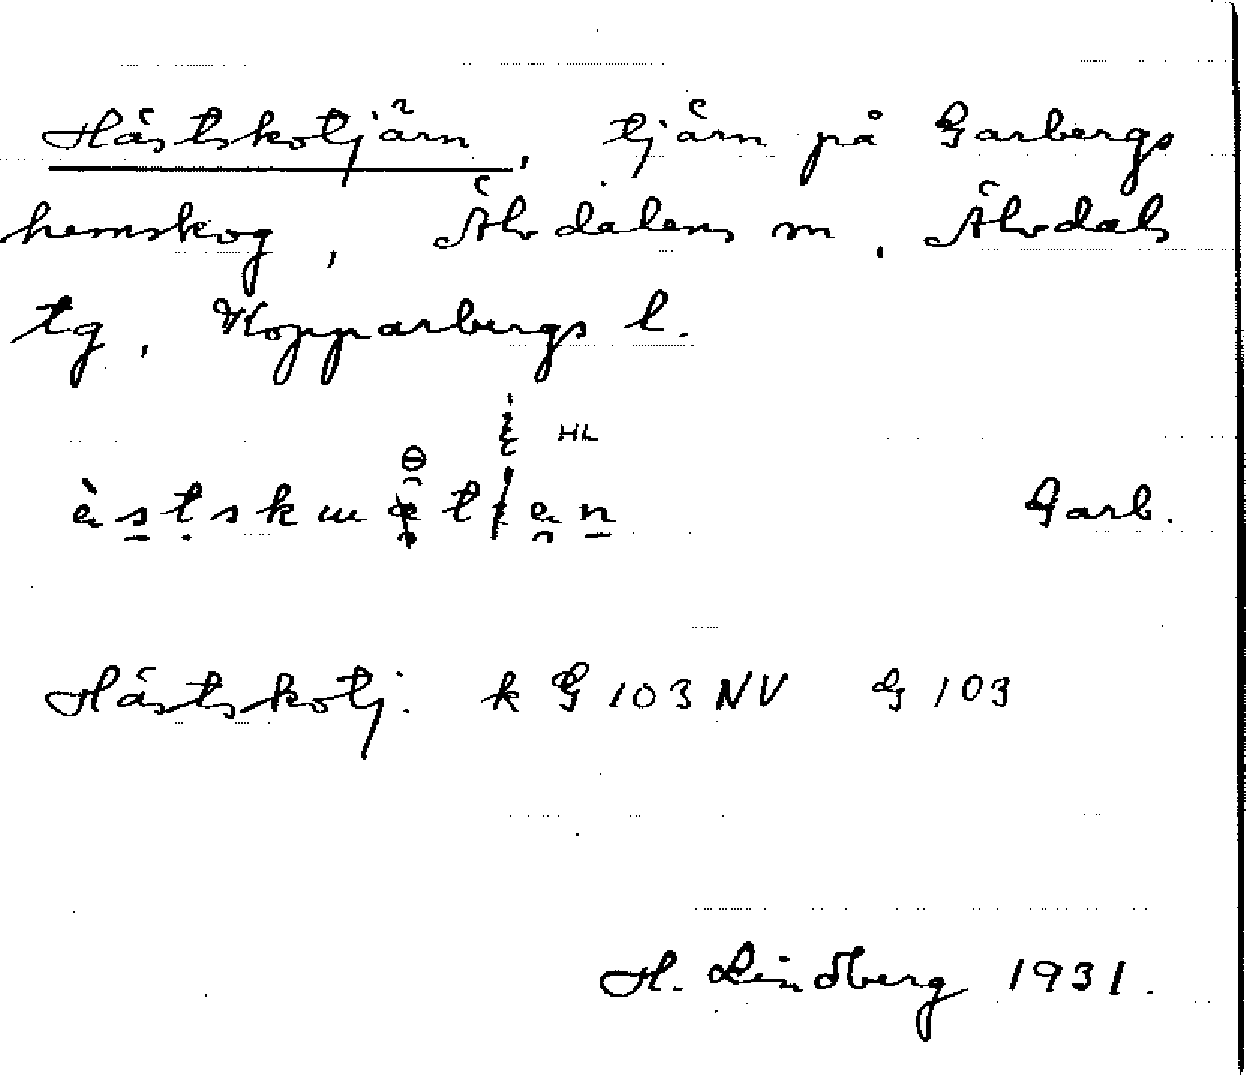 Hästskotjärn, tjärn på Garbergs
hemskog, Älvdalens m. Älvdals
tg, Kopparbergs l.
HL
Garb.
Hästskotj. k G 103 NV G 103
H. Lindberg 1931.